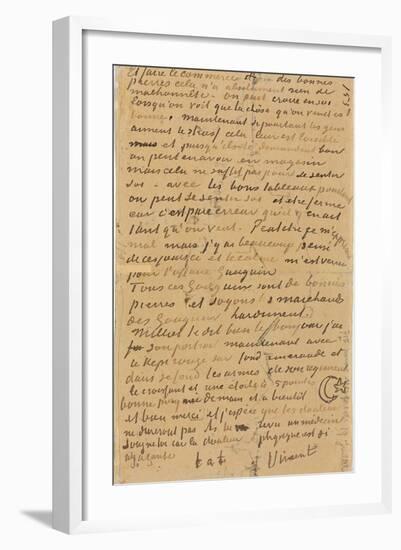 Et faire le commerce des bonnes
pierres cela n'a absolument rien de
malhonnête - on peut croire en soi
lorsqu'on voit que la chose qu'on vend est
bonne, maintenant pourtant les gens
aiment le strass cela leur est loisible
mais et puisqu'ils demandent bon
on peut en avoir en magasin
mais cela ne suffit pas pour se sentir
soi - avec les bons tableaux pourtant
on peut se sentir soi et être ferme
car c'est pure erreur qu'il y en ait
tant qu'on veut. Peut être je m'exprime
mal mais j'y ai beaucoup pensé
de ces jours ci et le calme m'est venu
pour l'affaire Gauguin
Tous ces Gauguin sont de bonnes
pierres et soyons marchands
des Gauguin hardiment
Milliet te dit bien le bonjour j'ai
son portrait maintenant avec
le Kepi rouge sur fond emeraude et
dans ce fond les armes de son regiment
le croissant et une étoile à 5 pointes
bonne poignée de main et à bientôt
et bien merci et j'espère que les douleurs
ne dureront pas As tu revu un medecin
soigne toi car la douleur physique est si
agaçante
t. à t. Vincent